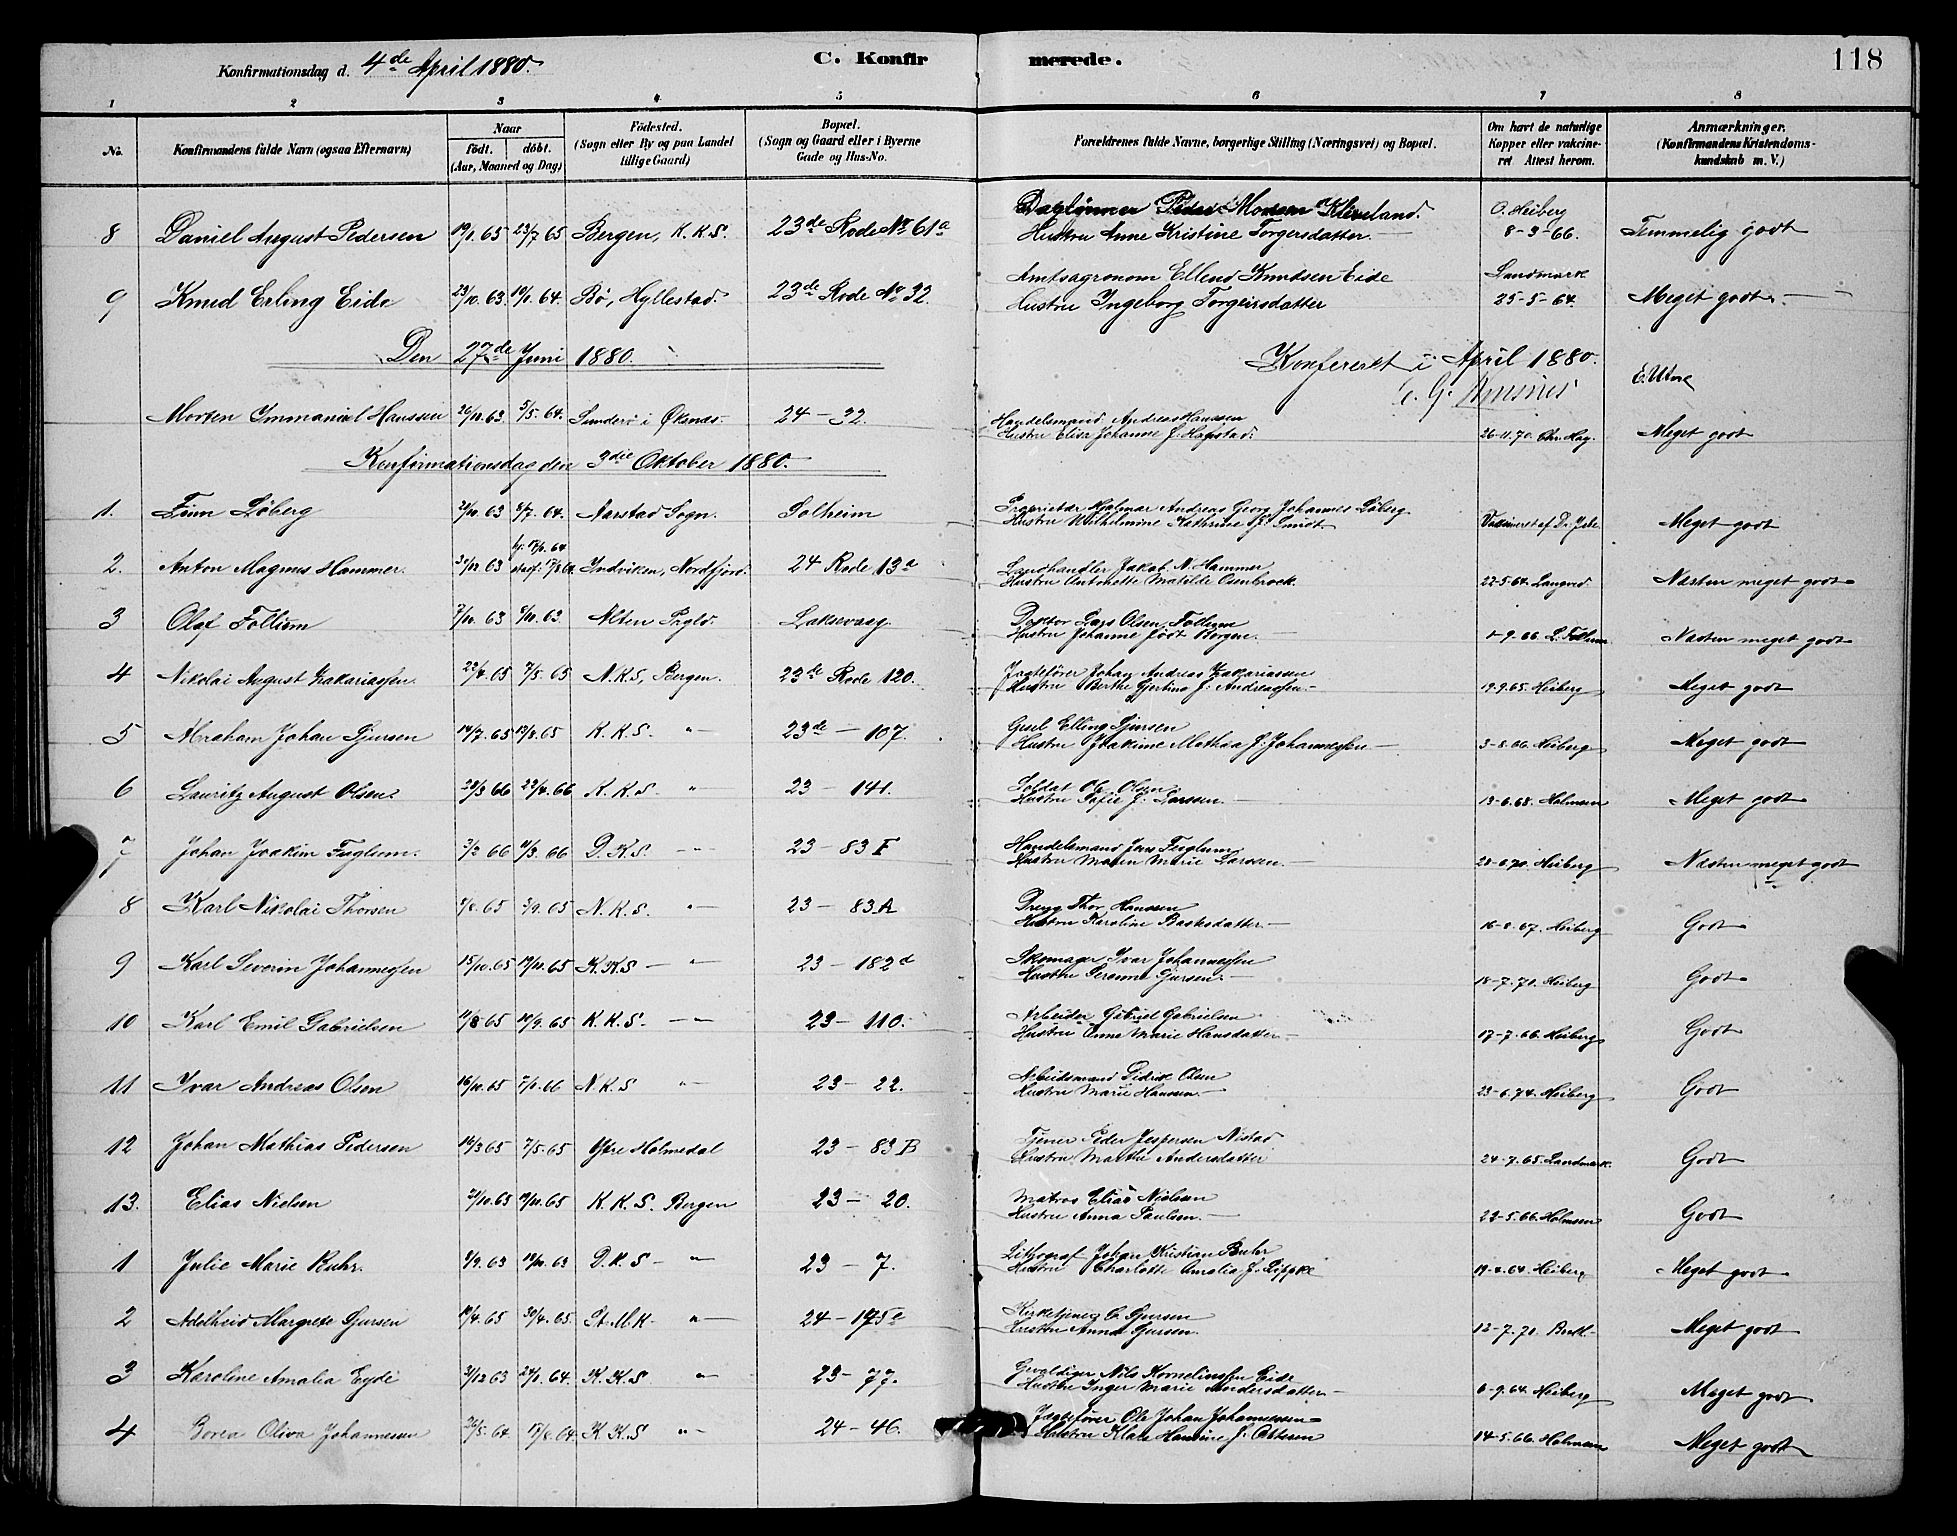 Konfirmationsdag d. 4de April 1880. C. Konfirmerede. 118
1 2 3 4 5 6 7 8
No. Konfirmandens fulde Navn (ogsaa Efternavn) Naar født. døbt. (Aar, Maaned og Dag) Fødested. (Sogn eller By og paa Landet tillige Gaard) Bopæl. (Sogn og Gaard eller i Byerne Gade og Hus-No. Forældrenes fulde Navne, borgerlige Stilling (Næringsvei) og Bopæl. Om havt de naturlige Kopper eller vakcineret Attest herom. Anmærkninger. (Konfirmandens Kristendomskundskab m. V.)
8 Daniel August Pedersen 19/1. 65 23/7 65 Bergen, K.K.S. 23de Rode No 61a Daglønner Peder Monsen Kleveland. Hustru Anne Kristine Torgersdatter. O. Heiberg 8-9-66. Temmelig godt
9 Knud Erling Eide 23/10. 63 10/1. 64. Bø, Hyllestad. 23de Rode No 32. Amtsagronom Ellend Knudsen Eide Hustru Ingeborg Torgeirsdatter Landmark 25-5-64. Meget godt
Den 27de Juni 1880. Konfereret i April 1880.
Morten Immanuel Hanssen 26/10. 63 5/5. 64. i Øksnes. 24 - 32. Handelsmand Andreas Hanssen Hustru Elisa Johanne f. Hagstad. 26-11.70. Chr. Hag. Meget godt
Konfirmationsdag den 3die Oktober 1880.
1. Finn Løberg /10 63 /7. 64. Aarstad Sogn. Solheim Proprietær Hjalmar Andreas Georg Johannes Løberg Hustru Wilhelmine Kathrine f. Smidt Vaksineret af Dr. Meget godt
2. Anton Magnus Hammer. 30/10 63 Indviken, Nordfjord. 24 Rode 13a Landhandler Jakob N. Hammer Hustru Antonette Matilde 22-5.64. Næsten meget godt
3 Olaf Follum 7/10. 63 /10. 63. Alten Pgld. Laksevaag Doktor Lars Olsen Follum Hustru Johanne født Borgen. 1-9-66. L. Follum Næsten meget godt
4 Nikolai August Zakariassen. 22/4. 65 7/5. 65 N.K.S, Bergen. 23de Rode 120. Jagtefører Johan Andreas Zakariassen Hustru Berthe Gjertine f. Andreassen 19.9.65. Heiberg Meget godt
5 Abraham Johan Gjursen 14/7. 65 13/8. 65 K.K.S. " 23de - 107. Elling Gjursen Hustru Joakime Mathea f. Johannessen 3-8.66. Heiberg Meget godt
6 Lauritz August Olsen. 24/3 66 22/4. 66 K.K.S " 23 - 141. Soldat Ole Olsen Hustru Sofie f. Larssen. 13-6.68. Holmsen Meget godt
7 Johan Joakim Fuglum. 3/2 66 11/3. 66 D.K.S. " 23 - 83 F Handelsmand Jens Fuglum Hustru Maren Marie Larssen. 28-6.70. Heiberg Næsten meget godt
8 Karl Nikolai Thorsen /8. 65 3/9. 65 N.K.S. " 23 - 83 A Dreng Thor Hanssen Hustru Karoline 16-8.67. Heiberg Godt
9 Karl Severin Johannessen 15/10. 65 19/11. 65 K.K.S " 23 - 182d Skomager Ivar Johannessen Hustru Serenne Gjursen. 18-7.70. Heiberg Godt
10 Karl Emil Gabrielsen 11/8 65 10/9. 65 K.K.S. " 23 - 110. Arbeider Gabriel Gabrielsen Hustru Anne Marie Hansdatter 17-7.66. Heiberg Godt
11 Ivar Andreas Olsen 16/10. 65 7/1. 66 N.K.S " 23 - 22. Arbeidsmand Didrik Olsen Hustru Marie Hanssen. 23-6.74. Heiberg Godt
12 Johan Mathias Pedersen 16/3 65 7/5. 65 Ytre Holmedal 23 - 83 B Tjener Peder Jespersen Nistad Hustru Marthe Andersdatter 24-7.65. Landmark. Godt
13. Elias Nielsen 2/10. 65 19/11. 65 K.K.S. Bergen 23 - 20. Matros Elias Nielsen Hustru Anna Paulsen. 22-5.66. Holmsen Godt
1 Julie Marie Buhr. 1/9. 63 18/10. 63 D.K.S " 23 - 7. Lithograf Johan Kristian Buhr Hustru Charlotte Amalia f. Lippke 19-8.64. Heiberg Meget godt
2 Adelheid Margrete Gjursen 10/4. 65 30/4. 65. St.M.K " 24 - 175a Kirketjener C. Gjursen Hustru Anna Gjursen. 12-7.70. Meget godt
3 Karoline Amalia Eyde 3/12 63 24/1. 64. K.K.S " 23 - 77. Gevaldiger Nils Kornelinssen Eide Hustru Inger Marie Andersdatter 6-9.64. Heiberg Meget godt
4 Borea Oliva Johannessen 26/5. 64. 17/6. 64. K.K.S " 24 - 46. Jagtefører Ole Johan Johannessen Hustru Klara Hansine f. Ottesen 14-5.66. Holmsen Meget godt